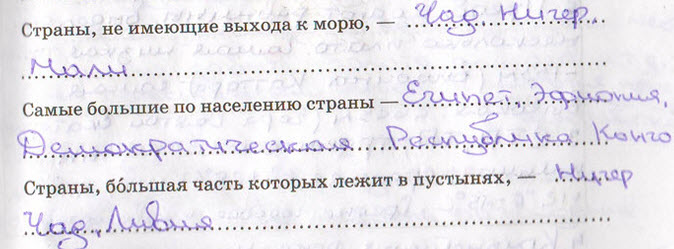 Страны, не имеющие выхода к морю, — Чад, Нигер,
Мали
Самые большие по населению страны — Египет, Эфиопия,
Демократическая Республика Конго
Страны, бо́льшая часть которых лежит в пустынях, — Нигер
Чад, Ливия